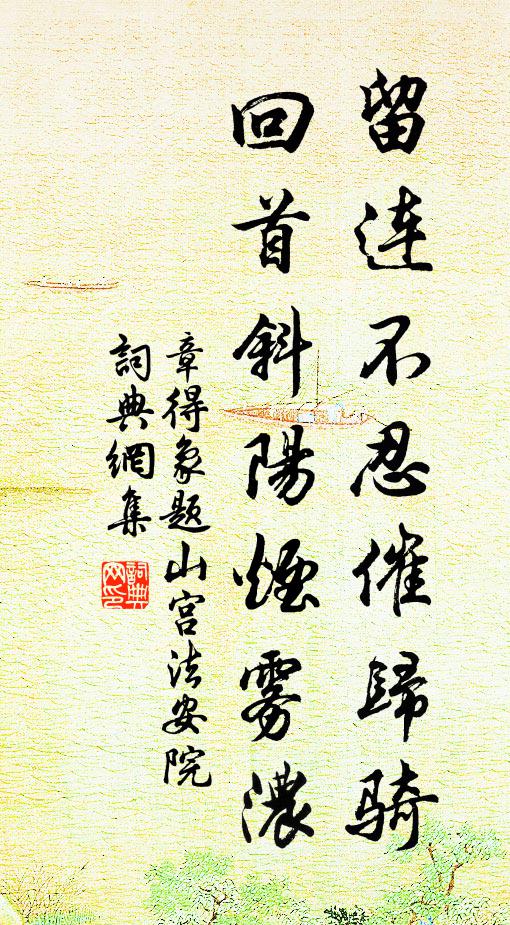 留连不忍催歸骑
回首斜陽煙雾濃
章得象题山宫法安院
詞典網集
詞典网印